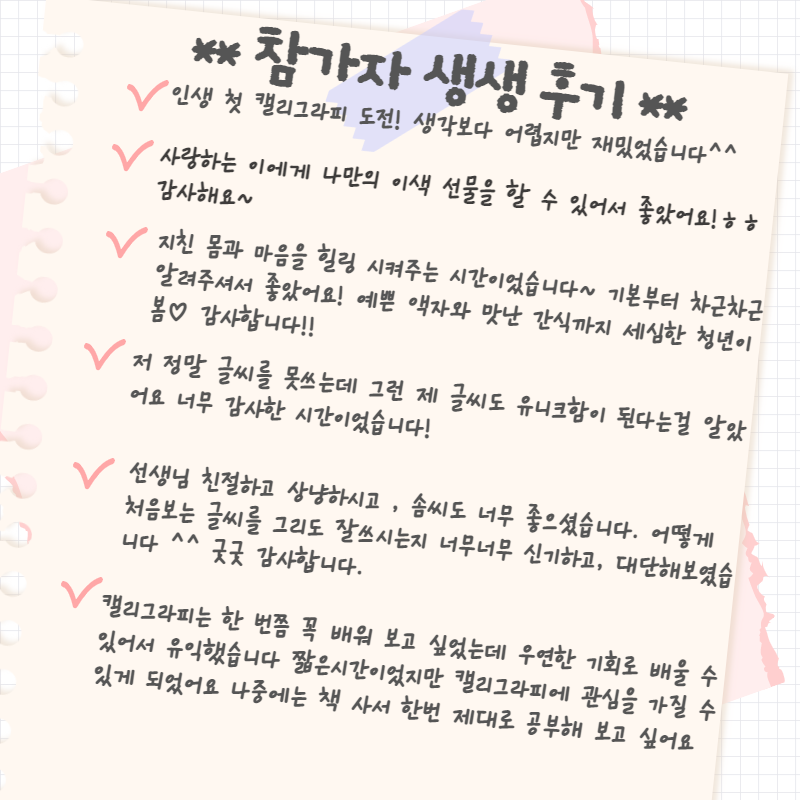 ** 참가자 생생 후기 **
인생 첫 캘리그라피 도전! 생각보다 어렵지만 재밌었습니다^^
사랑하는 이에게 나만의 이색 선물을 할 수 있어서 좋았어요!ㅎㅎ
감사해요~
지친 몸과 마음을 힐링 시켜주는 시간이었습니다~ 기본부터 차근차근
알려주셔서 좋았어요! 예쁜 액자와 맛난 간식까지 세심한 청년이
봄♡ 감사합니다!!
저 정말 글씨를 못쓰는데 그런 제 글씨도 유니크함이 된다는걸 알았
어요 너무 감사한 시간이었습니다!
선생님 친절하고 상냥하시고 , 솜씨도 너무 좋으셨습니다. 어떻게
처음보는 글씨를 그리도 잘쓰시는지 너무너무 신기하고, 대단해보였습
니다 ^^ 굿굿 감사합니다.
캘리그라피는 한 번쯤 꼭 배워 보고 싶었는데 우연한 기회로 배울 수
있어서 유익했습니다 짧은시간이었지만 캘리그라피에 관심을 가질 수
있게 되었어요 나중에는 책 사서 한번 제대로 공부해 보고 싶어요